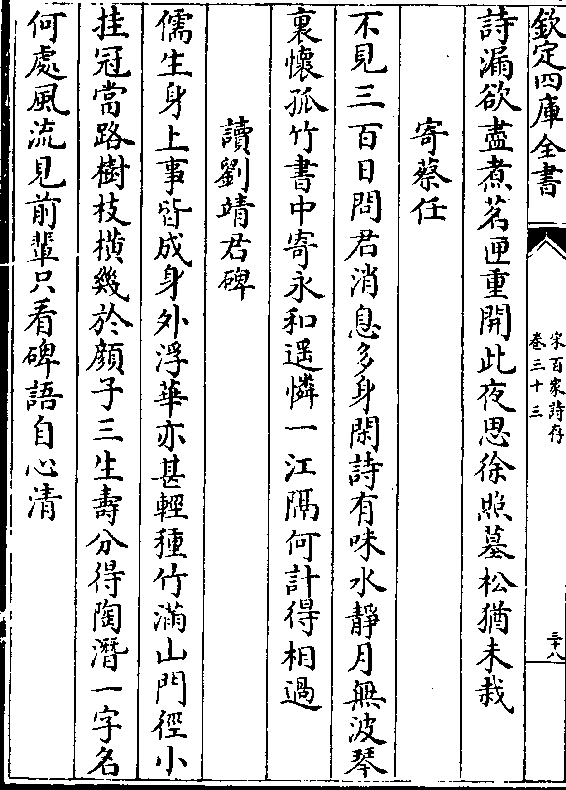 欽定四庫全書
宋百家詩存
卷三十三
三十八
詩漏欲盡煮茗匣重開此夜思徐照墓松猶未栽
寄蔡任
不見三百日問君消息多身閑詩有味水靜月無波琴
裏懷孤竹書中寄永和遥憐一江隔何計得相過
讀劉靖君碑
儒生身上事皆成身外浮華亦甚輕種竹滿山門徑小
挂冠當路樹枝橫幾於顔子三生壽分得陶潛一字名
何處風流見前輩只看碑語自心清